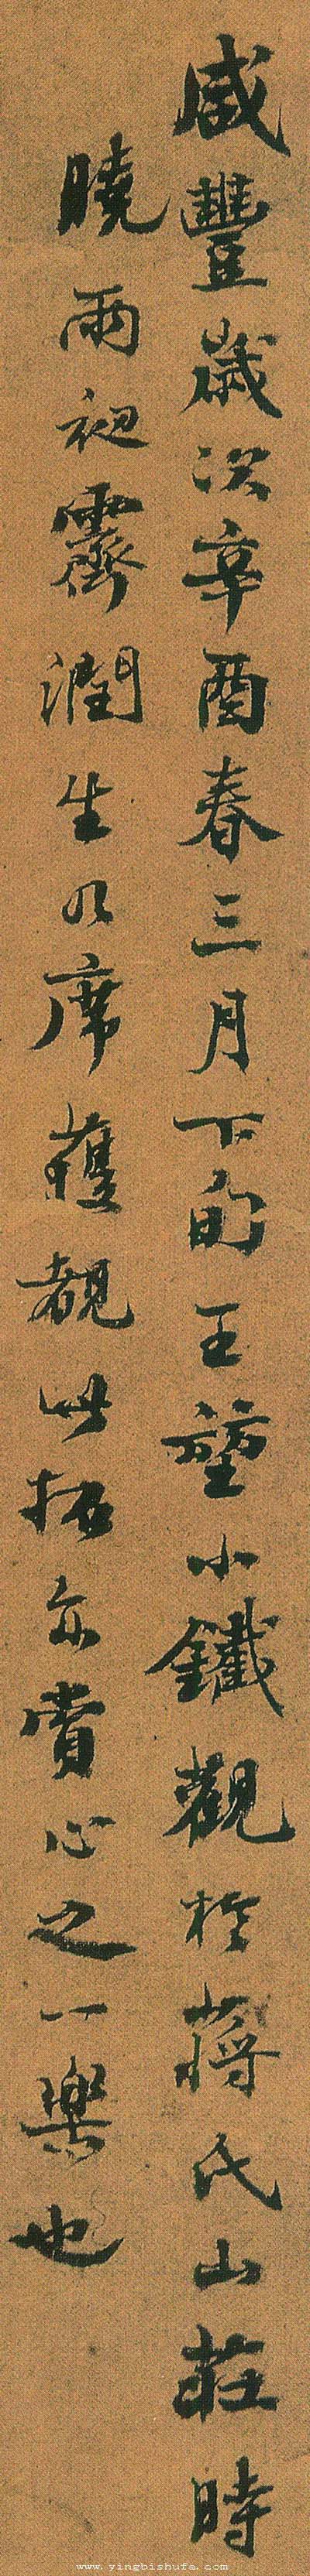 咸豐歲次辛酉春三月下旬王堃小鐵觀於蔣氏山莊時
曉雨初霽潤生几席獲覩此拓亦賞心之一樂也
www.yingbishufa.com